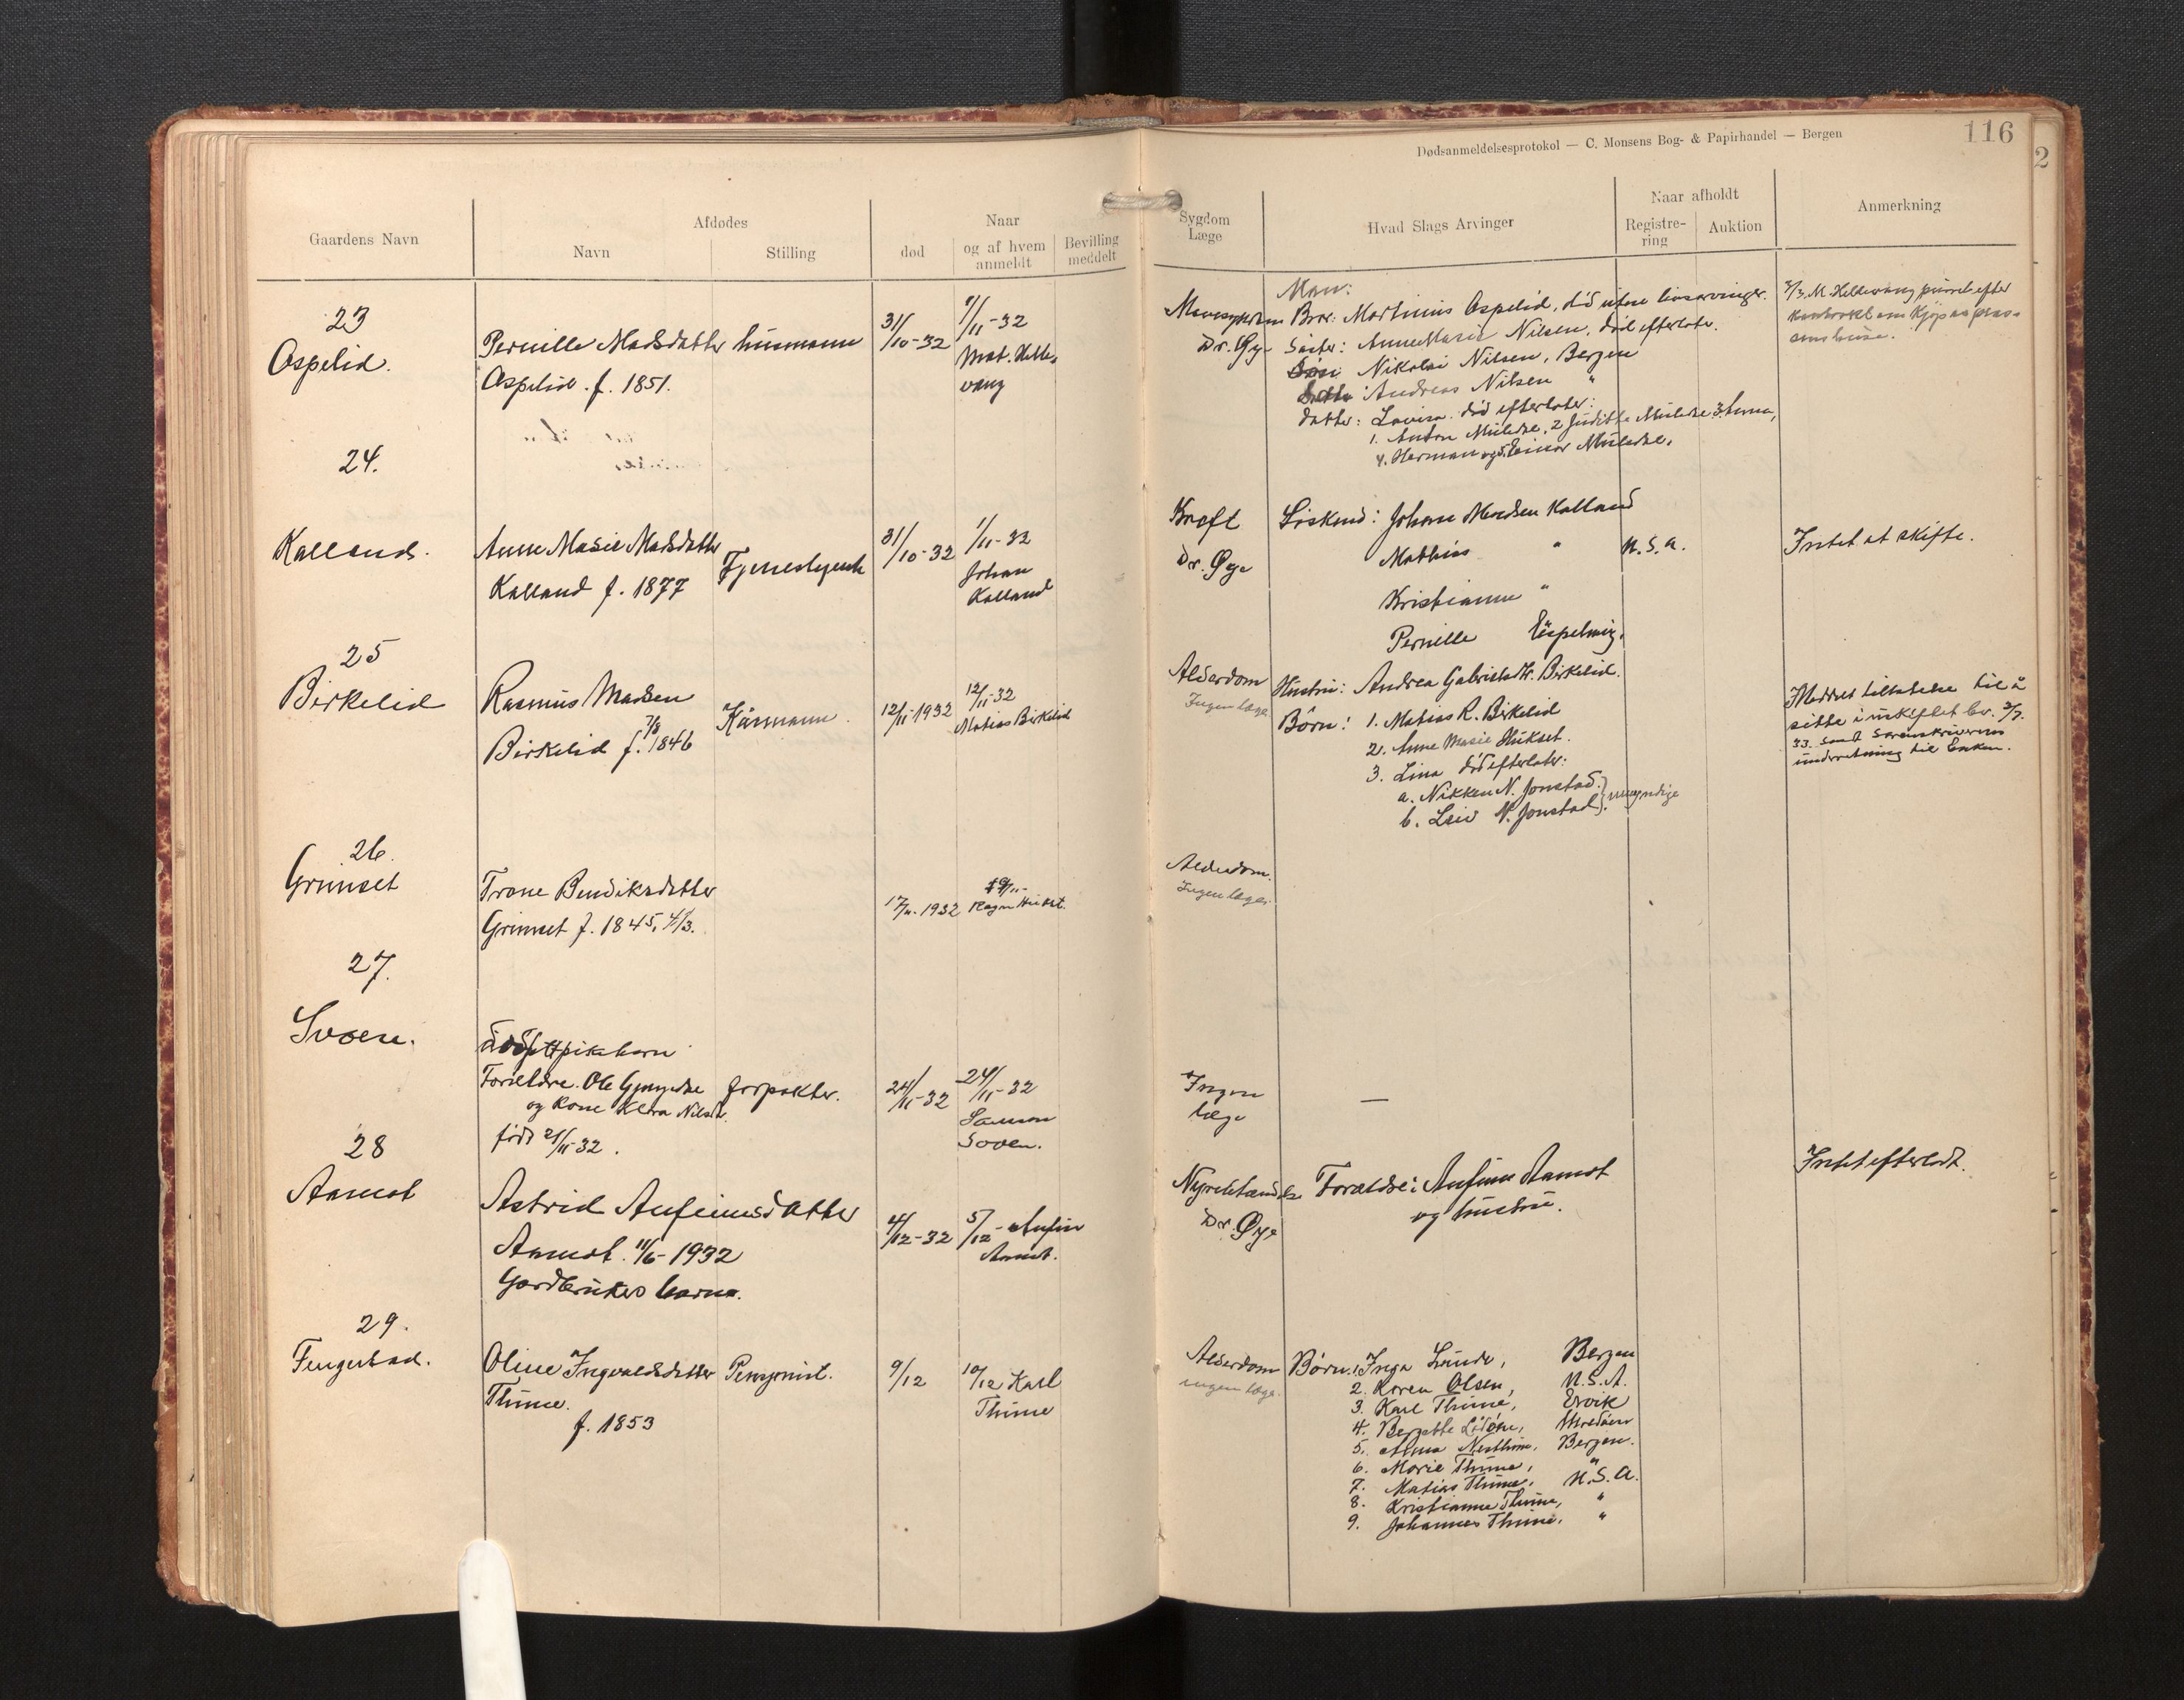 Dødsanmeldelsesprotokol — C. Monsens Bog- & Papirhandel — Bergen
116
2
Gaardens Navn
Afdødes
Navn
Stilling
Naar
død
og af hvem anmeldt
Bevilling meddelt
Sygdom
Læge
Hvad Slags Arvinger
Naar afholdt
Registre-
ring
Auktion
Anmerkning
23
Ospelid.
Pernille Madsdatter
Ospelid. f. 1851.
husmann
31/10-32
1/11-32
Mat. Helle-
vang
Mavesygdom
Dr. Øye
Man:
Bror: Martinus Ospelid, død uten livsarvinger.
Søster: Anne Marie Nilsen, død efterlater.
Søn: Nikolai Nilsen, Bergen
Andreas Nilsen "
datter: Lovisa død efterlater:
1. Anton Mulelse, 2 Juditte Mulelse 3. Anna,
4. Herman og 5. Einar Mulelse.
3/3. M. Hellevang purret efter
24.
Kalland.
Anne Marie Madsdatter
Kalland f. 1877
Tjenestejente
31/10-32
1/11-32
Johan
Kalland
Kreft
Dr. Øye
Søskend: Johan Madsen Kalland
Mathias "
Kristianne "
Pernille Espelwig.
U.S.A.
Intet at skifte.
25
Birkelid
Rasmus Madsen
Birkelid f. 7/8 1846
Kårmann.
12/11-1932
12/11-32
Matias Birkelid
Alderdom
Ingen læge
Hustru: Andrea Gabrielsdtr. Birkelid.
Børn: 1. Matias R. Birkelid
2. Anne Marie Hukset.
3. Lina død efterlater:
a. Nikken N. Jonstad.
b. Leiv N. Jonstad.
umyndige
Meddelt tillatelse til å
sitte i uskiftet bo. 3/7.
33. Sendt Sorenskriverens
underretning til Enken.
26.
Grimset
Trone Bendiksdatter
Grimset f. 1845, 4/3.
17/11-1932
19/11-
Ragn Hukset.
Alderdom.
Ingen læge.
27.
Svoen.
Udøpt pikebarn
Forældre. Ole Gjengedal
og kone Klara Nilsdt.
født 21/11-32.
forpakter.
24/11-32
24/11-32
Samson
Svoen.
Ingen
læge
—
28
Aamot
Astrid Anfinnsdatter
Aamot. 11/6-1932
Gardbrukers barn.
4/12-32
5/12- Anfin
Aamot.
Nyrebetændelse
Dr. Øye
Forældre: Anfinn Aamot
og hustru.
Intet efterladt.
29.
Fengestad.
Oline Ingvaldsdatter
Thune.
f. 1853
Pensjonist.
9/12
10/12 Karl
Thune
Alderdom
ingen læge.
Børn: 1. Inga Lunde, Bergen
2. Karen Olsen, U.S.A.
3. Karl Thune, Ervik
4. Bergitte
5. Anna Bergen.
6. Marie Thune, "
7. Matias Thune, U.S.A.
8. Kristianne Thune, "
9. Johannes Thune. "